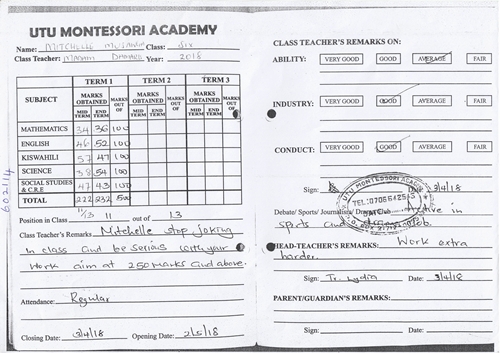 UTU MONTESSORI ACADEMY
Name: MITCHELLE Class: Six
Class Teacher: MADAM Year: 2018
SUBJECT TERM 1 TERM 2 TERM 3
MARKS OBTAINED MARKS OUT OF MARKS OBTAINED MARKS OUT OF MARKS OBTAINED MARKS OUT OF
MID TERM END TERM MID TERM END TERM MID TERM END TERM
MATHEMATICS 34 36 100
ENGLISH 46 52 100
KISWAHILI 57 47 100
SCIENCE 38 54 100
SOCIAL STUDIES & C.R.E 47 43 100
TOTAL 222 232 500
Position in Class 11/13 11 out of 13
Class Teacher's Remarks Mitchelle stop joking
in class and be serious with your
work aim at 250 marks and above.
Attendance: Regular
Closing Date: 3/4/18 Opening Date: 2/5/18
602114
CLASS TEACHER'S REMARKS ON:
ABILITY: VERY GOOD GOOD AVERAGE FAIR
INDUSTRY: VERY GOOD GOOD AVERAGE FAIR
CONDUCT: VERY GOOD GOOD AVERAGE FAIR
Sign: Date: 3/4/18
UTU MONTESSORI ACADEMY
TEL: 0706642545
Debate/ Sports/ Journalist/ Drama Club Active in
sports and
HEAD-TEACHER'S REMARKS: Work extra
harder.
Sign: Tr. Lydia Date: 3/4/18
PARENT/GUARDIAN'S REMARKS:
Sign: Date: